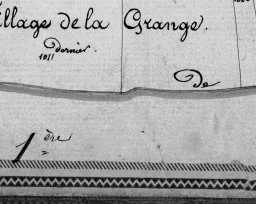 illage de la Grange.
Dernier.
1011
De
1 ère